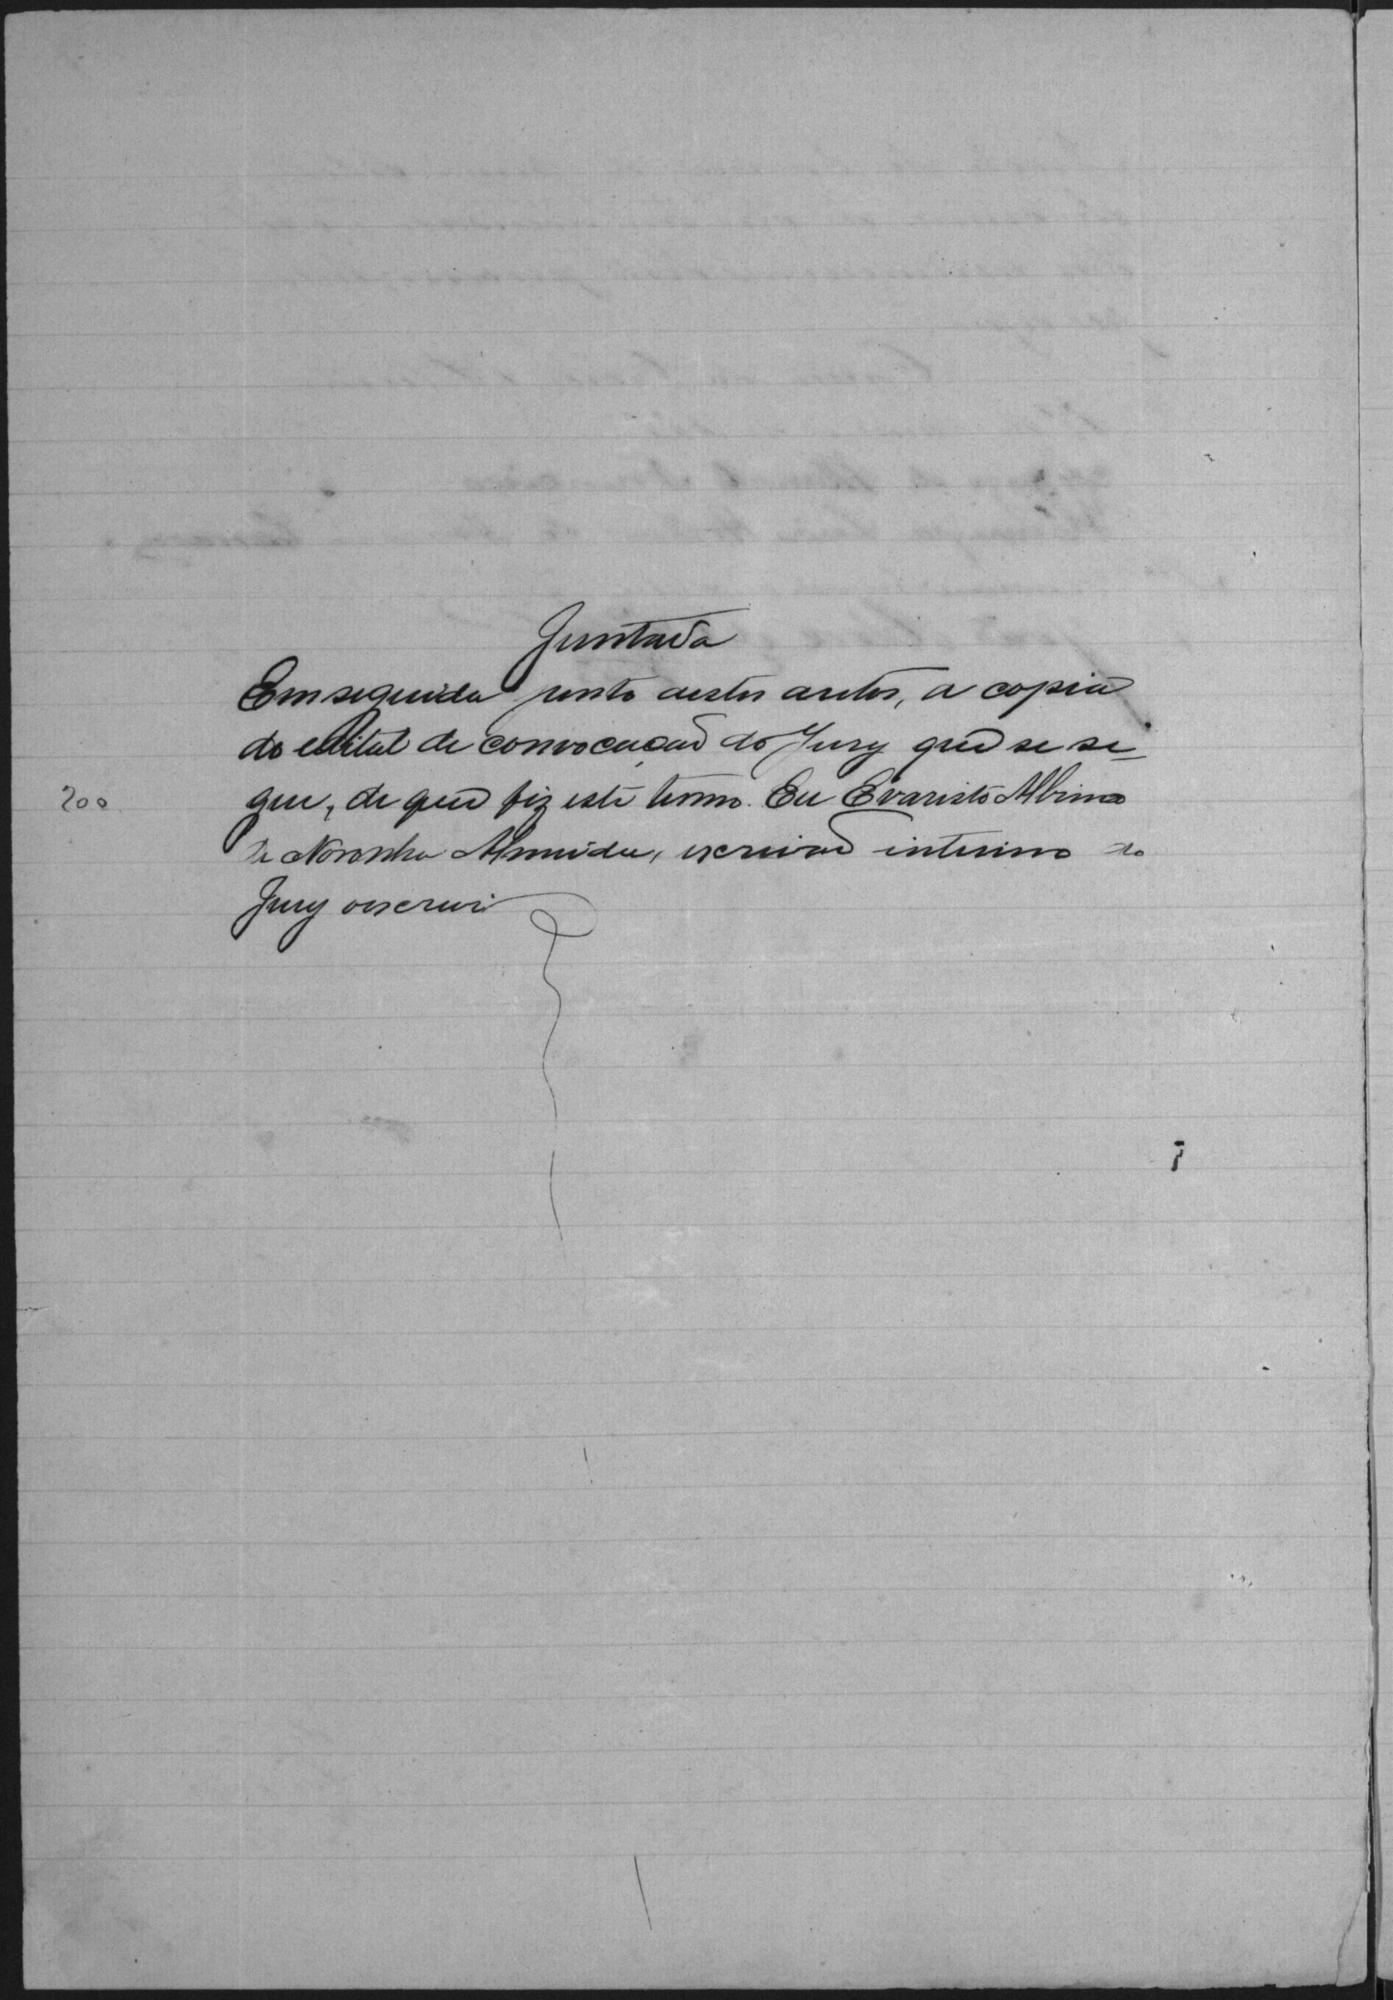 Juntada
Em seguida junto aestes autos, a copia
do edital de convocação do Jury que se se-
gue, de que fiz este termo. Eu Evaristo Albino
200
de Noronha Almeida, escrivão interino do
Jury oescrevi